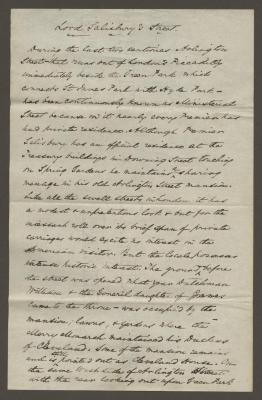 Lord Salisbury's Street.
During the last two centuries Arlington
Street that runs out of London's Piccadilly
immediately beside the Green Park which
connects St James Park with Hyde Park -
has been continuously known as Ministerial
Street because in it nearly every Premier has
had private residence. Although Premier
Salisbury has an official residence at the
Treasury buildings in Downing Street touching
on Spring Gardens he maintains
menage in his old Arlington Street mansion.
Like all the swell streets in London it has
a modest & unpretentious look & but for the
massive rolls over its brief span of private
carriages would excite no interest in the
American visitor. But the locale possesses
intense historic interest. The ground before
the street was opened what year Dutchman
William & the daughter of James
came to the throne - was occupied by the
mansion, lawns, & gardens where the
Merrie Monarch maintained his Duchess
of Cleveland. Some of the mansion remains
and is pointed out as Cleveland House. On
the same West side of Arlington Street
with the rear looking out upon Green Park